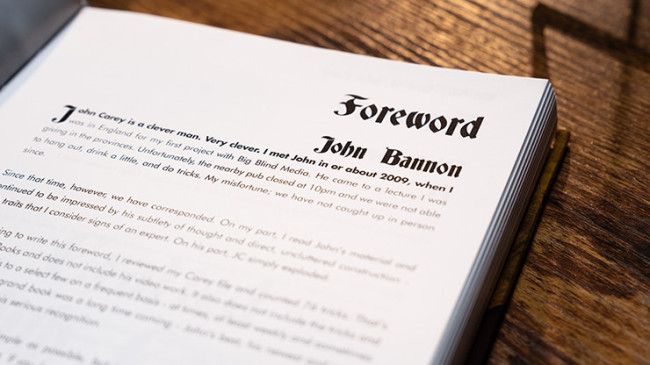 Foreword
John Bannon
John Carey is a clever man. Very clever. I met John in or about 2009, when I
was in England for my first project with Big Blind Media. He came to a lecture I was
giving in the provinces. Unfortunately, the nearby pub closed at 10pm and we were not able
to hang out, drink a little, and do tricks. My misfortune; we have not caught up in person
since.
Since that time, however, we have corresponded. On my part, I read John's material and
continued to be impressed by his subtlety of thought and direct, uncluttered construction -
traits that I consider signs of an expert. On his part, JC simply exploded.
ing to write this foreword, I reviewed my Carey file and counted 76 tricks. That's
Books and does not include his video work. It also does not include the tricks and
s to a select few on a frequent basis - at times, at least weekly and sometimes
grand book was a long time coming - John's best, his newest
is serious recognition.